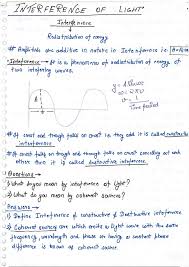 INTERFERENCE OF LIGHT
Interference
Redistribution of energy
# Amplitudes are additive in nature in Interference i.e.
Interference → It is a phenomenon of redistribution of energy of
two interfering waves.
A
# If crest and trough falls on crest i.e. they add it is called constructive
interference.
# If crest falls on trough and trough falls on crest cancelling out each
other then it is called destructive interference.
Questions
1) What do you mean by interference of light?
2) What do you mean by coherent sources?
Answers
1) Define Interference & constructive & Destructive interference
2) Coherent sources are which emits light wave with the same
frequency, wavelength and phase or having a constant phase
difference is known as coherent source.